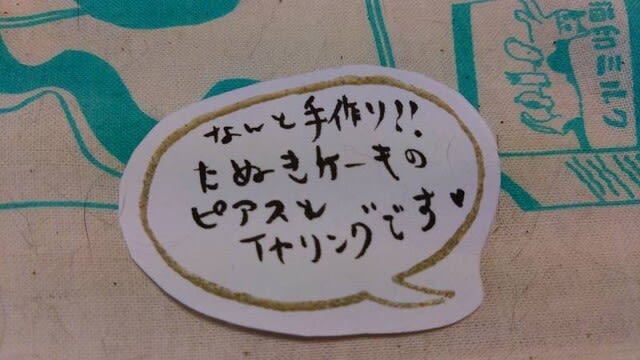 なんと手作り!!
たぬきケーキの
ピアスと
イヤリングです♥
猫和ミルク